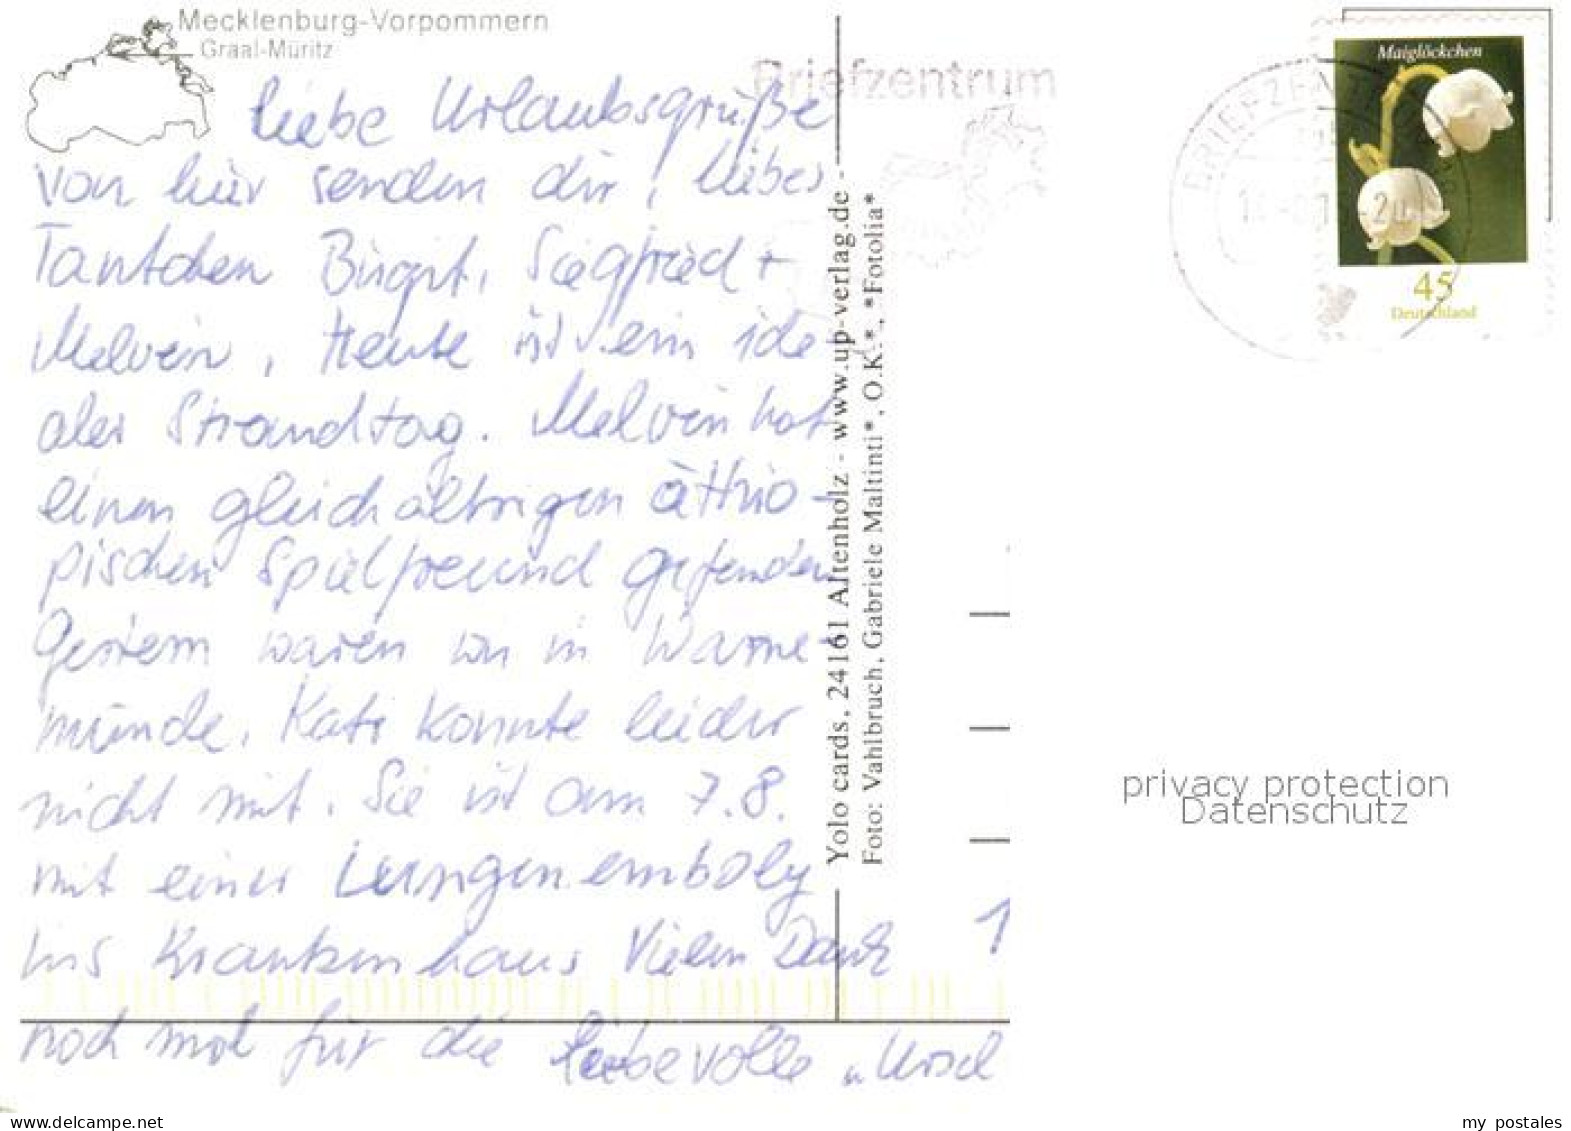 Mecklenburg-Vorpommern
Graal-Müritz
liebe Urlaubsgrüße
von hier senden dir, liebes
Tantchen Birgit, Siegfried +
Melvin, Heute ist ein ide
aler Strandtag. Melvin hat
einen gleichaltrigen äthio-
pischen Spielfreund gefunden
Gestern waren wir in Warne-
münde. Kati konnte leider
nicht mit. Sie ist am 7.8.
mit einer Lungenemboly
ins Krankenhaus Vielen Dank
noch mal für die liebevolle
Yolo cards, 24161 Altenholz - www.up-verlag.de -
Foto: Vahlbruch, Gabriele Maltinti*, O.K.*, *Fotolia*
Briefzentrum
BRIEFZENTRUM
Maiglöckchen
45
Deutschland
privacy protection
Datenschutz
delcampe.net
my_postales